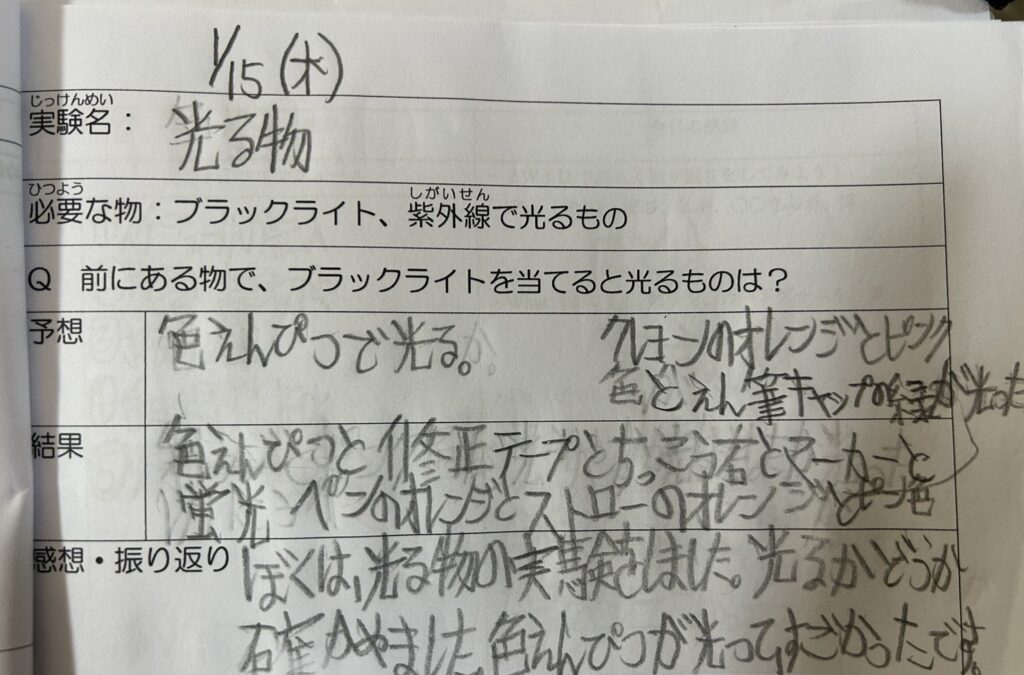 1/15(木)
じっけんめい
実験名：光る物
ひつよう しがいせん
必要な物：ブラックライト、紫外線で光るもの
Q 前にある物で、ブラックライトを当てると光るものは？
予想 色えんぴつで光る。 クレヨンのオレンジとピンク
色とえん筆キャップの緑が光った
結果 色えんぴつと修正テープとちっこう石とマーカーと
蛍光ペンのオレンジとストローのオレンジとピンク色
感想・振り返り ぼくは、光る物の実験をしました。光るかどうか
かめました。色えんぴつが光って、すごかったです。